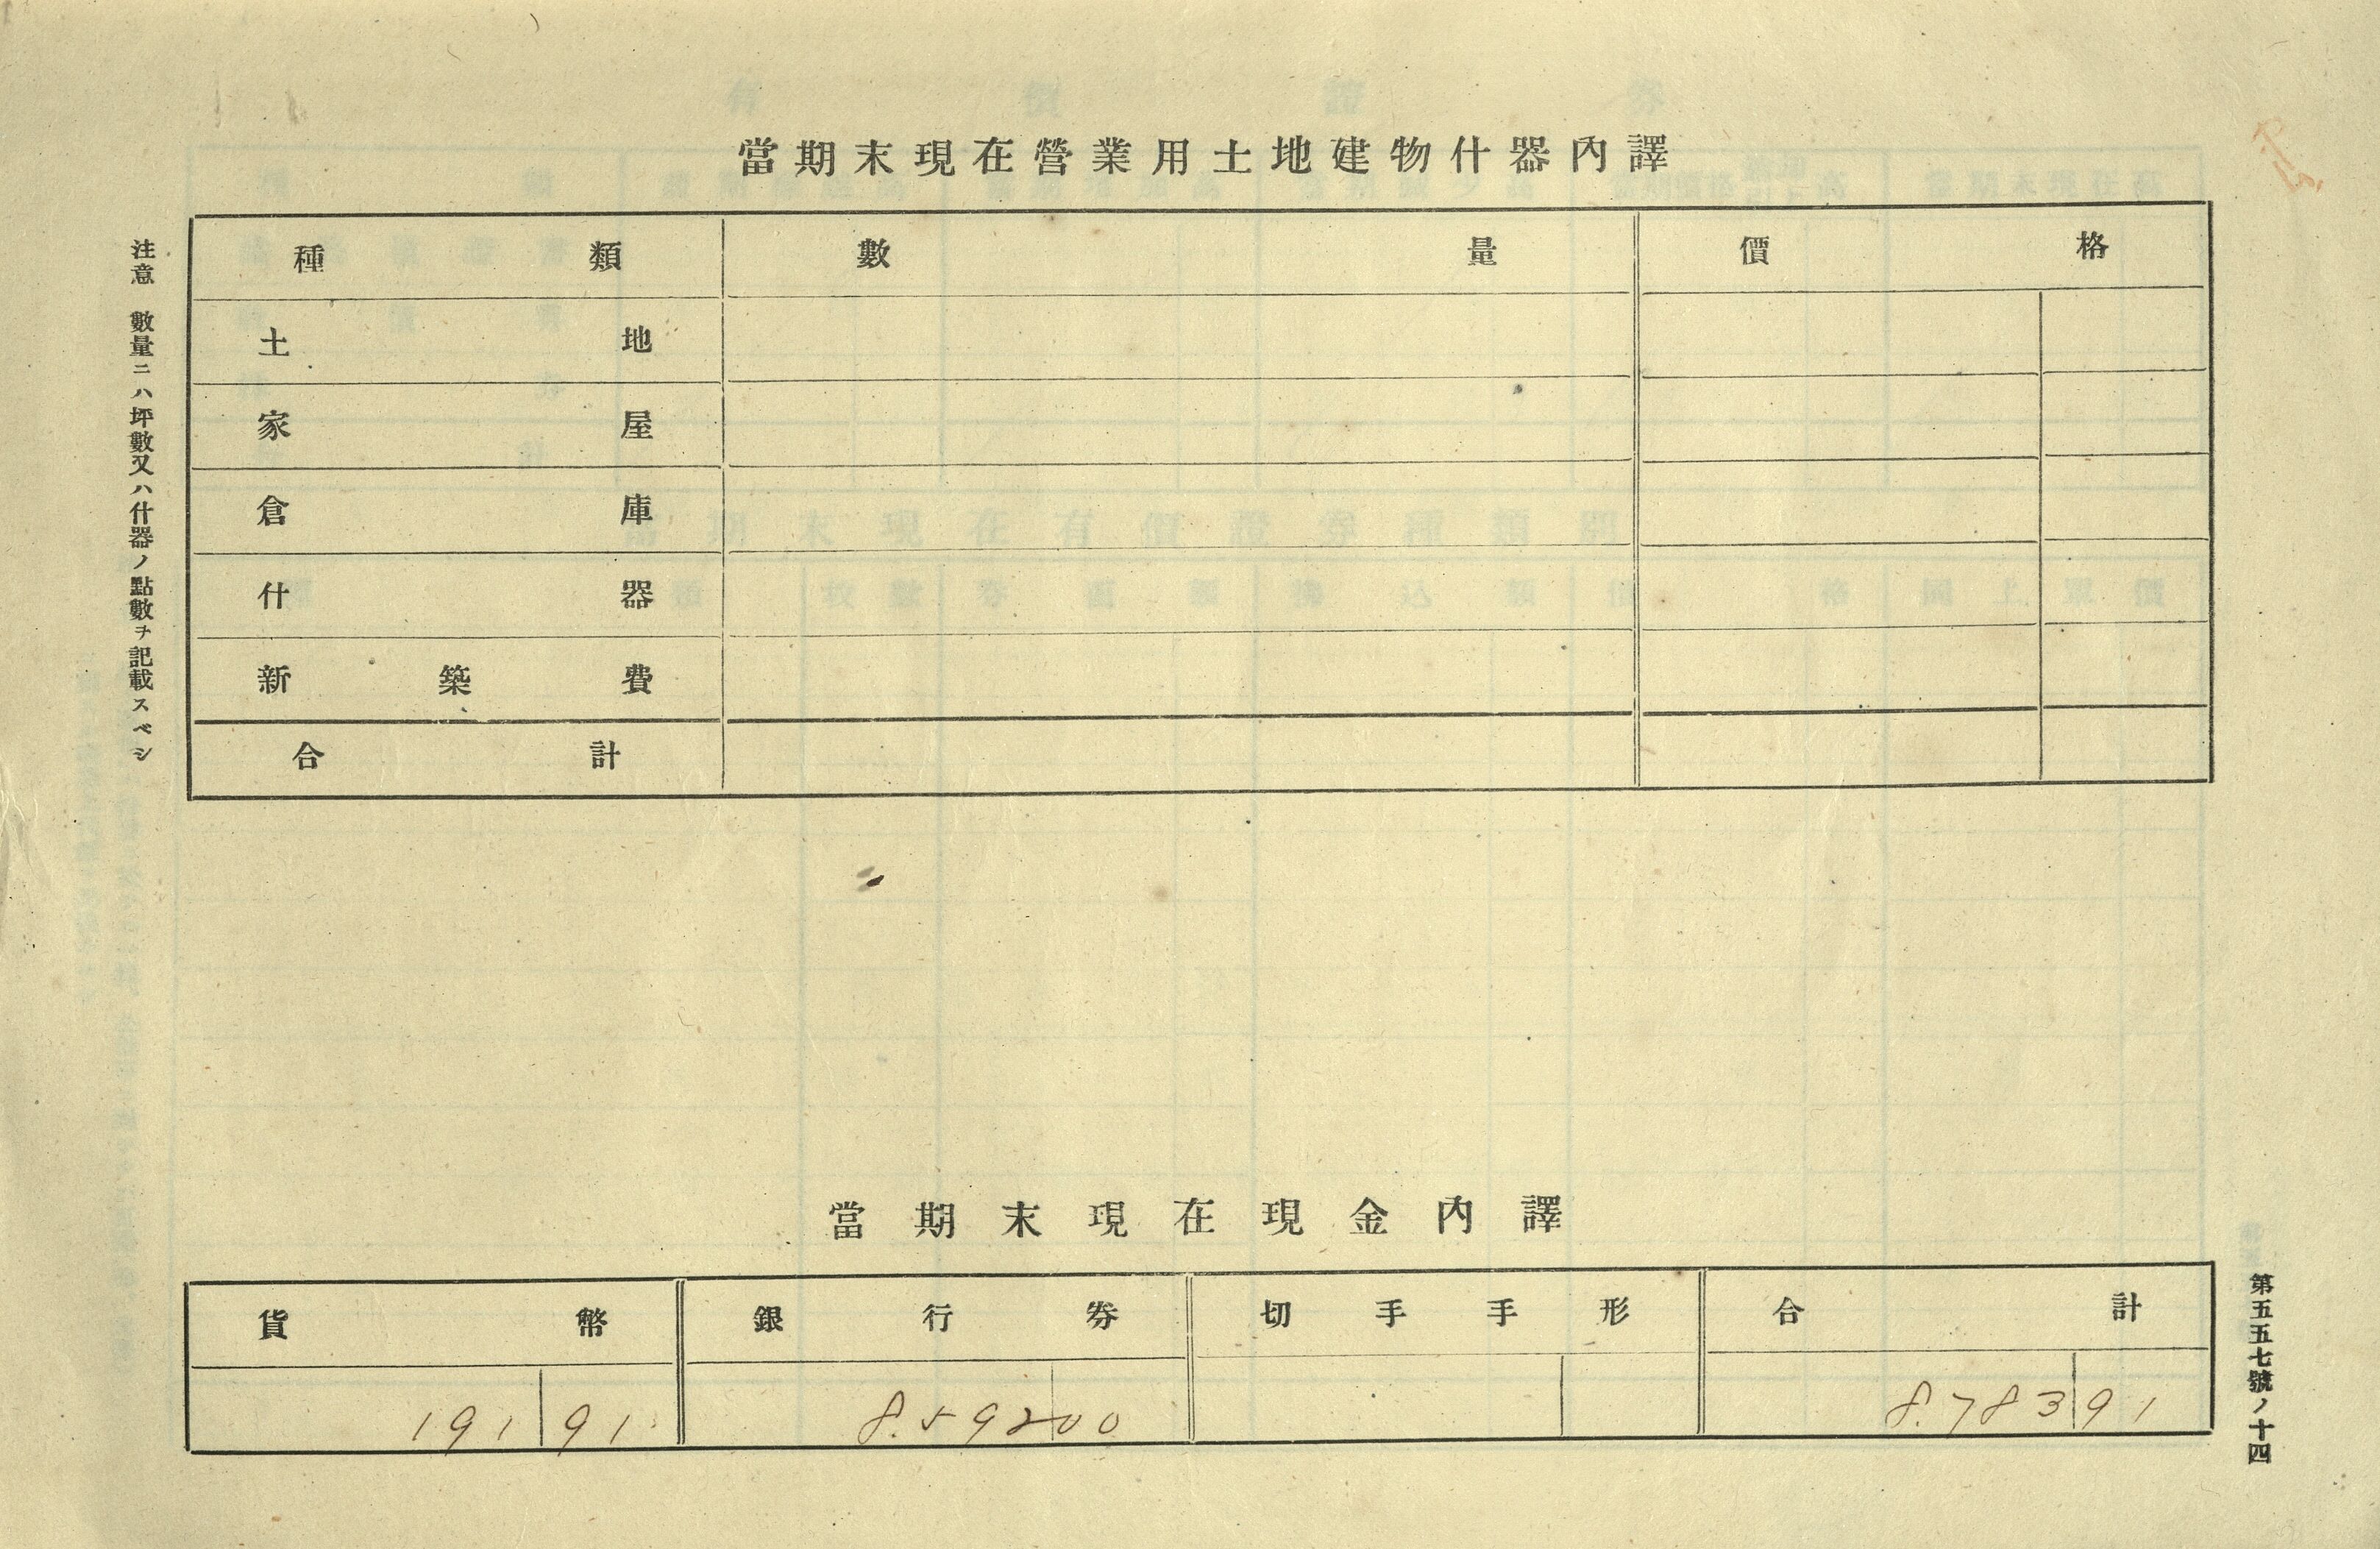 當期末現在營業用土地建物什器內譯
種類 數量 價格
土地
家屋
倉庫
什器
新築費
合計
注意 數量ニハ坪數又ハ什器ノ點數ヲ記載スベシ
當期末現在現金內譯
貨幣 銀行券 切手手形 合計
191 91 8.592 00 8.783 91
第五五七號ノ十四